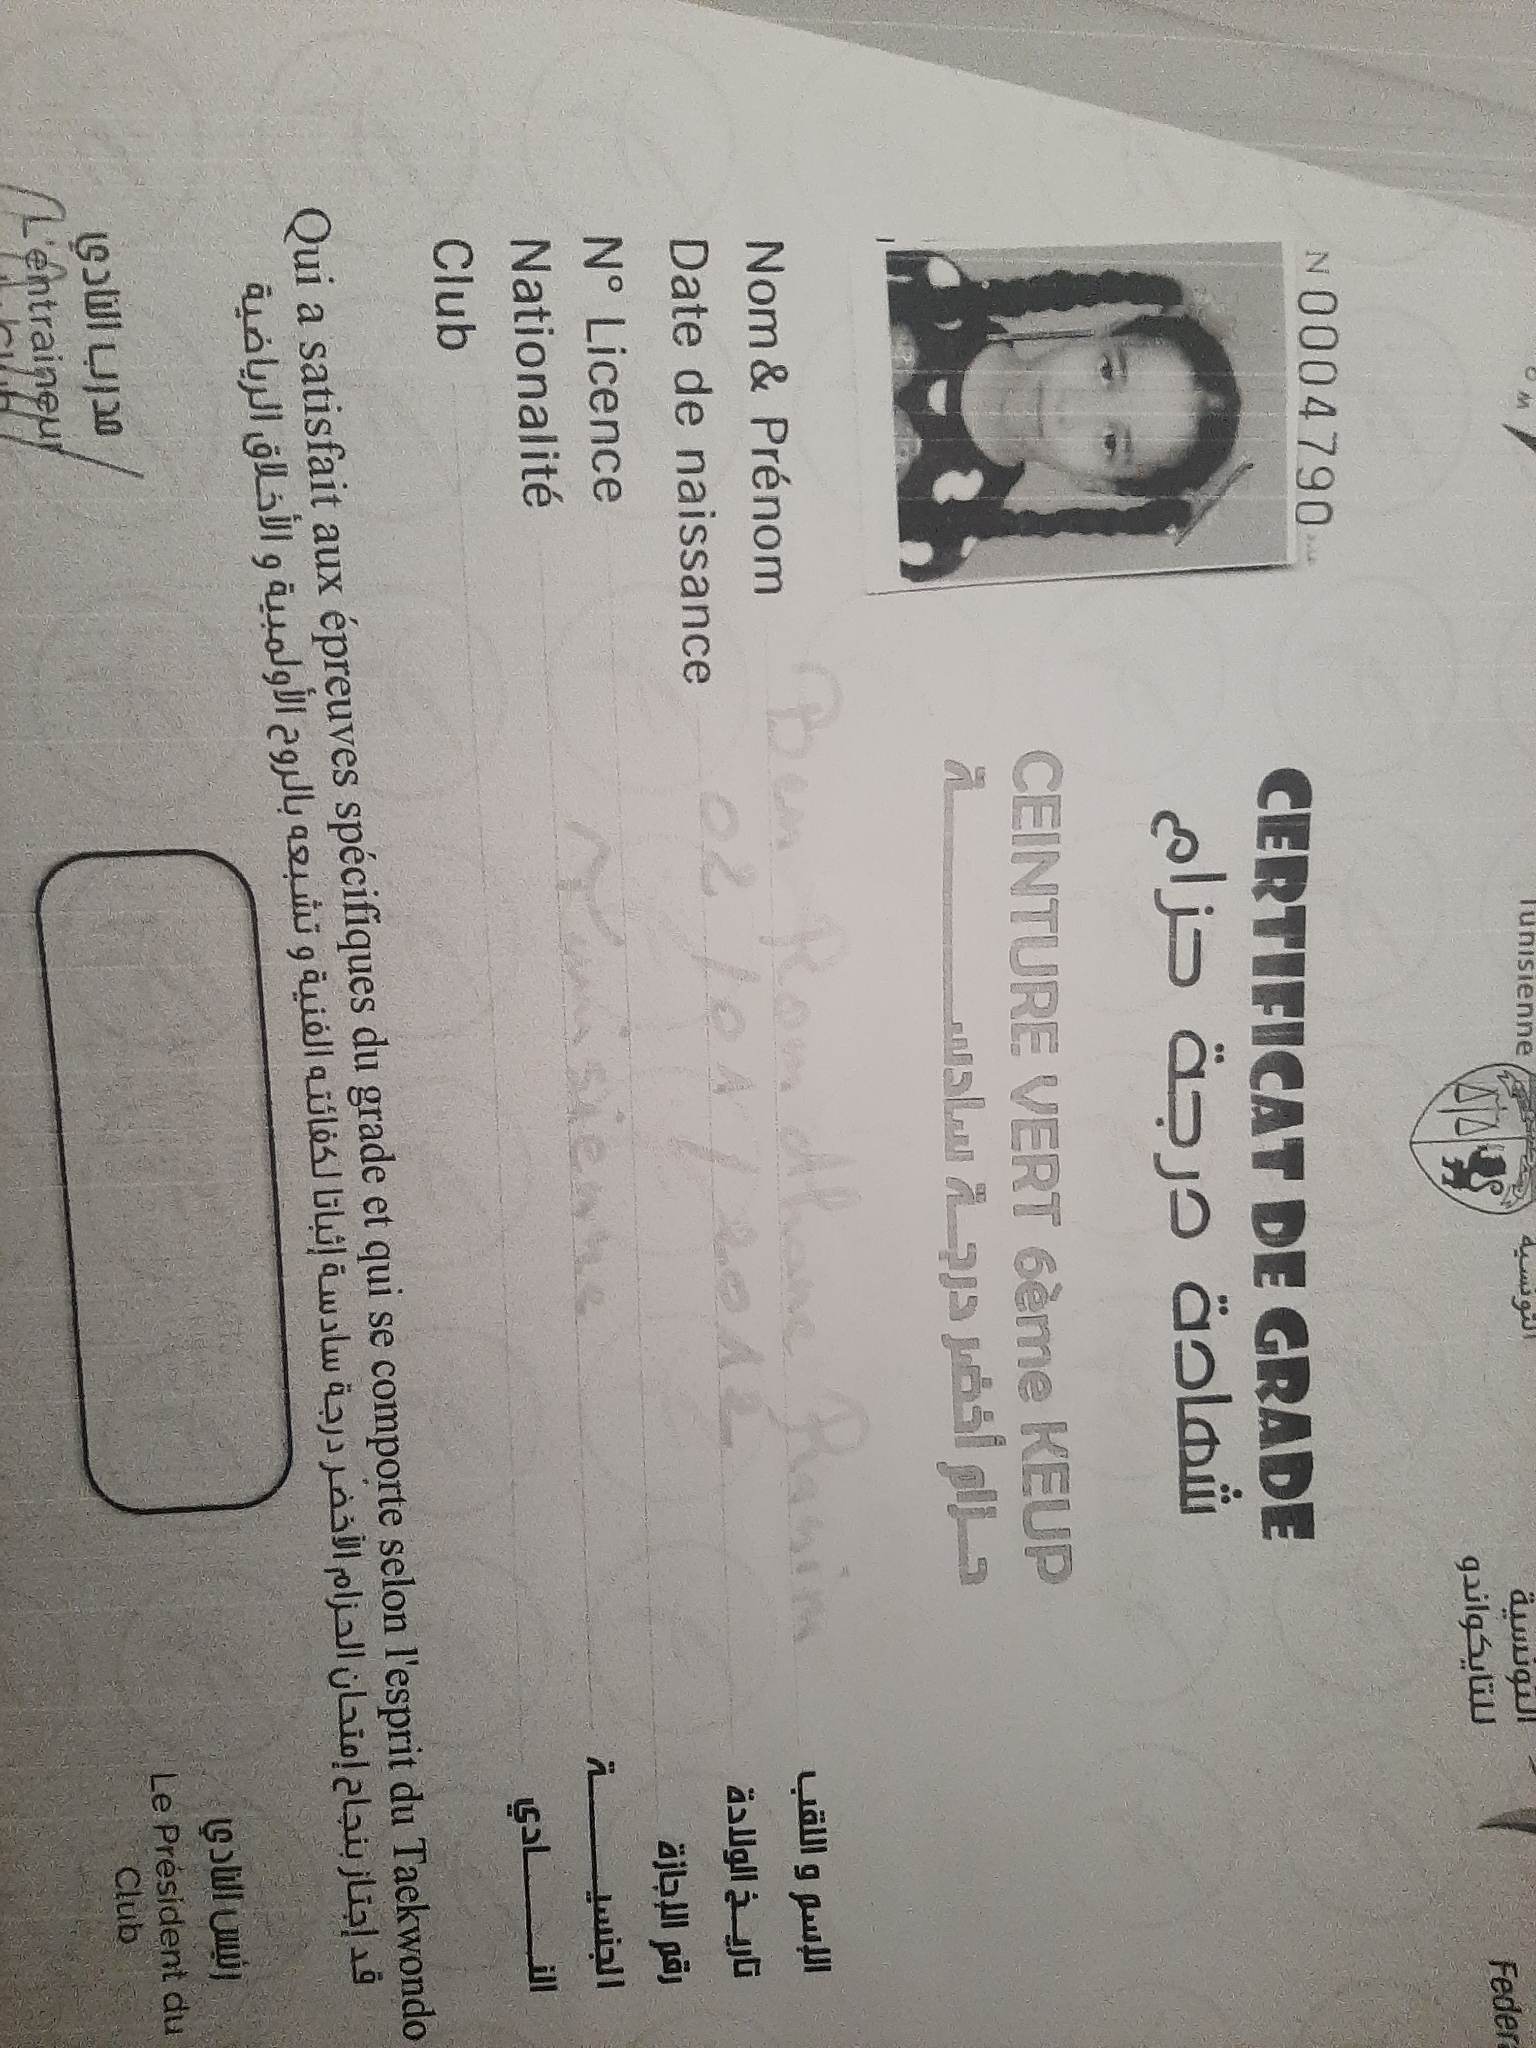 Tunisienne
التونسية
التونسية
للتايكواندو
N 0004790 عدد
CERTIFICAT DE GRADE
شهادة درجة حزام
CEINTURE VERT 6ème KEUP
حـزام أخضر درجـة سادســـــة
Nom & Prénom Ben Romdhane Rasim الإسم و اللقب
Date de naissance 02/01/2012 تاريـخ الولادة
N° Licence رقم الإجازة
Nationalité Tunisienne الجنسيـــــة
Club النـــــادي
Qui a satisfait aux épreuves spécifiques du grade et qui se comporte selon l'esprit du Taekwondo
قد إجتاز بنجاح إمتحان الحزام الأخضر درجة سادسة إثباتا لكفائته الفنية و تشبعه بالروح الأولمبية و الأخلاق الرياضية
مدرب النادي
L'entraineur
رئيس النادي
Le Président du
Club